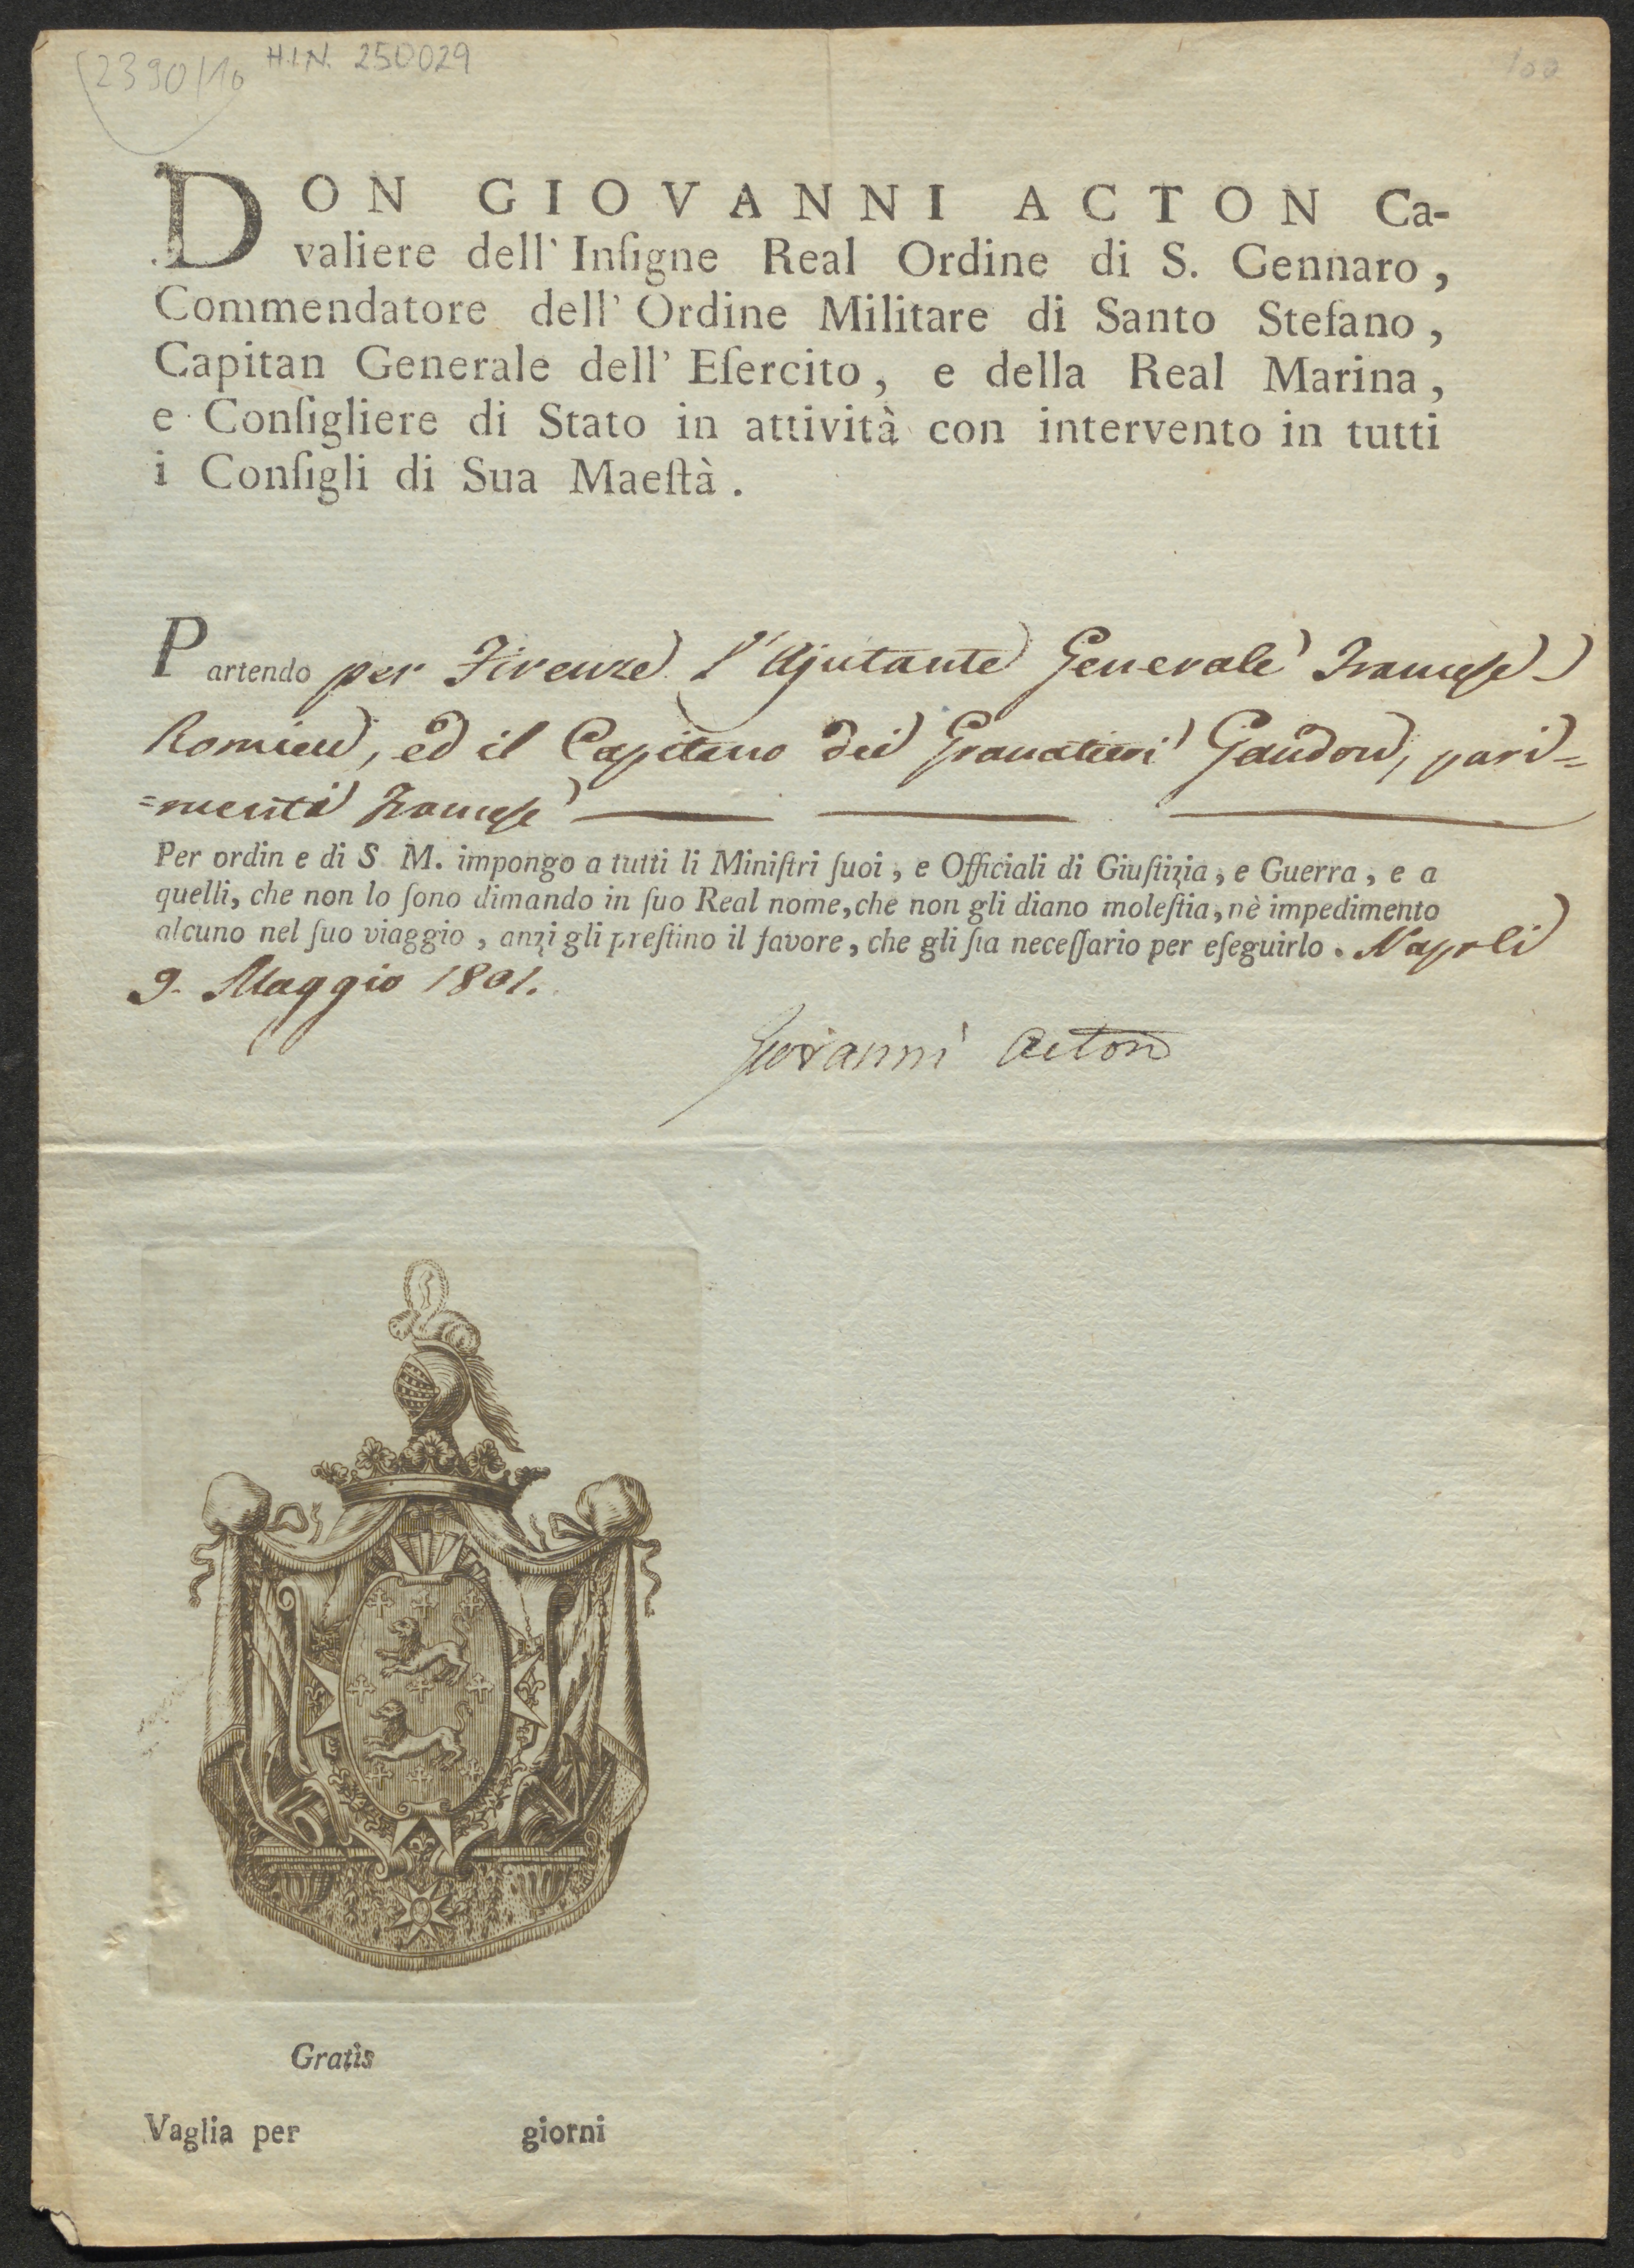 (2390/10 H.I.N. 250029
100
DON GIOVANNI ACTON Ca-
valiere dell' Inſigne Real Ordine di S. Gennaro,
Commendatore dell' Ordine Militare di Santo Stefano,
Capitan Generale dell' Eſercito, e della Real Marina,
e Conſigliere di Stato in attività con intervento in tutti
i Conſigli di Sua Maeſtà.
Partendo per Firenze l'Ajutante Generale Francese
Romieu, ed il Capitano dei Granatieri Gaudon, pari=
=menti Francese
Per ordin e di S M. impongo a tutti li Miniſtri ſuoi, e Officiali di Giuſtizia, e Guerra, e a
quelli, che non lo ſono dimando in ſuo Real nome, che non gli diano moleſtia, nè impedimento
alcuno nel ſuo viaggio, anzi gli preſtino il favore, che gli ſia neceſſario per eſeguirlo. Napoli
9. Maggio 1801.
Giovanni Acton
Gratis
Vaglia per giorni